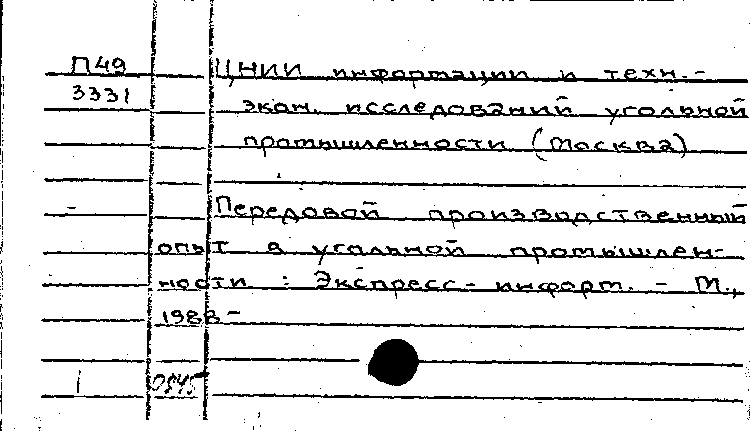 П49 ЦНИИ информации и техн.-
3331 экон. исследований угольной
промышленности (Москва)
Передовой производственный
опыт в угольной промышлен-
ности : Экспресс-информ. - М.,
1988-
1 0545